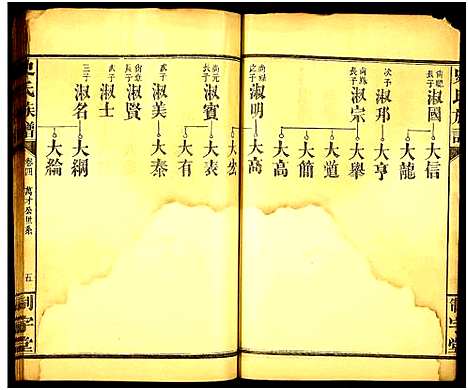 史氏族譜
尚聰長子 淑國 大信
大龍
次子 淑邦
尚賜長子 淑宗 大舉
大道
大簡
大高
淑明 大高
大公
尚元長子 淑賓 大表
大有
次子 淑美 大泰
尚章長子 淑賢
次子 淑士
三子 淑名 大綱
大綸
史氏族譜 卷四 萬才公世系 五 制字堂
制字堂